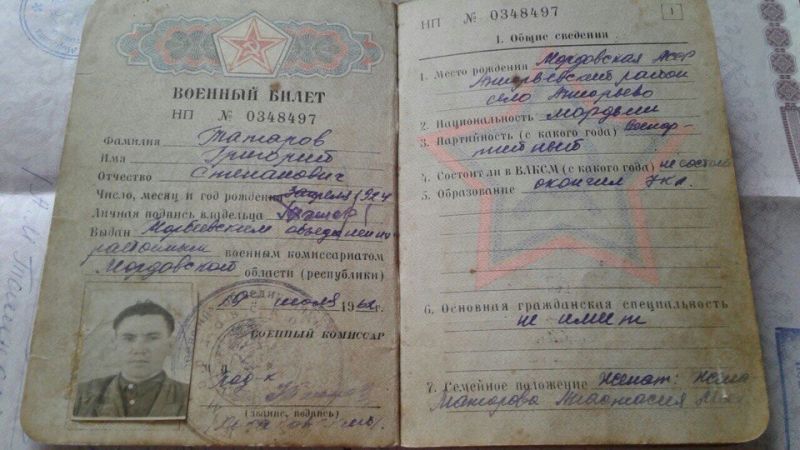 ВОЕННЫЙ БИЛЕТ
НП № 0348497
Фамилия Татаров
Имя Григорий
Отчество Степанович
Число, месяц и год рождения 3 апреля 1924
Личная подпись владельца
Выдан объединенным
районным военным комиссариатом
Мордовской области (республики)
июля 196 г.
ВОЕННЫЙ КОМИССАР
(звание, подпись)
НП № 0348497
1
1. Общие сведения
1. Место рождения Мордовская АССР
район
село
2. Национальность мордвин
3. Партийность (с какого года) Беспар-
тийный
4. Состоял ли в ВЛКСМ (с какого года) не состоял
5. Образование окончил 7 кл.
6. Основная гражданская специальность
не имеет
7. Семейное положение Женат: жена
Анастасия